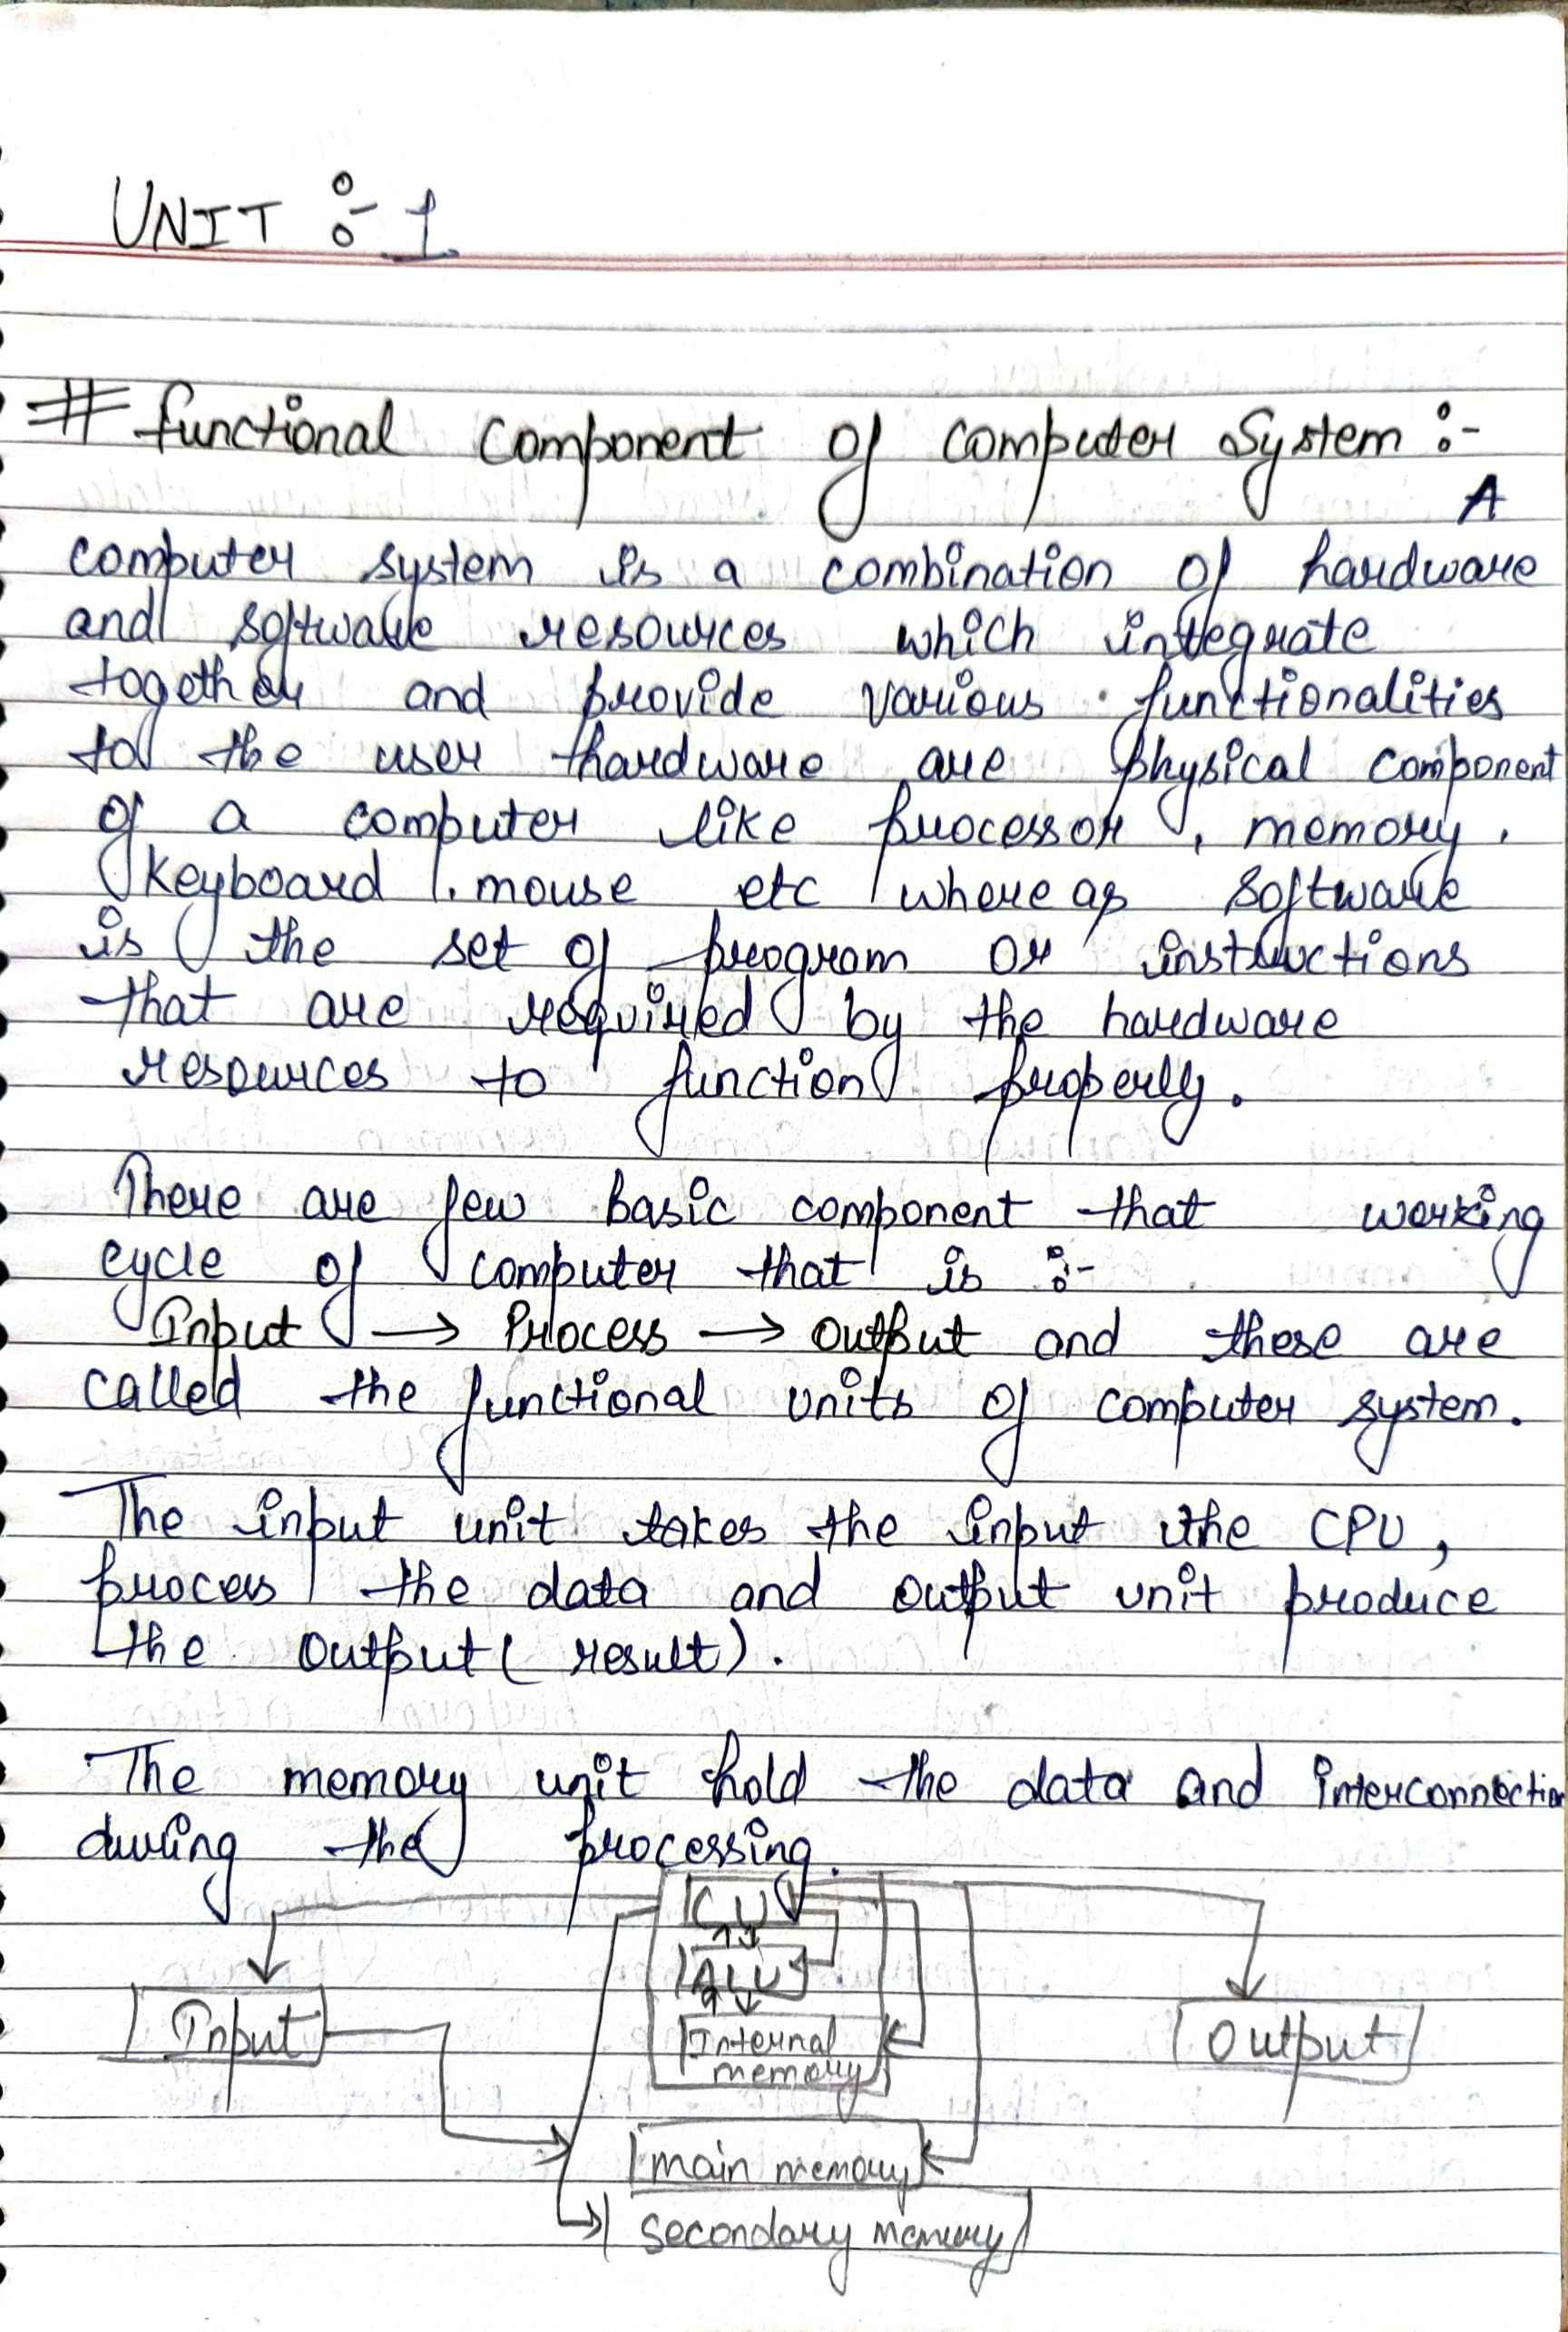 UNIT :- 1
# functional component of computer System :-
A
computer system is a combination of hardware
and software resources which integrate
together and provide various functionalities
to the user hardware are physical component
of a computer like processor, memory,
keyboard, mouse etc where as software
is the set of program or instructions
that are required by the hardware
resources to function properly.
There are few basic component that working
cycle of computer that is :-
Input → Process → output and these are
called the functional units of computer system.
The input unit takes the input the CPU,
process the data and output unit produce
the output( result).
The memory unit hold the data and interconnection
during the processing.
CU
ALU
Input
Internal
memory
output
main memory
secondary memory